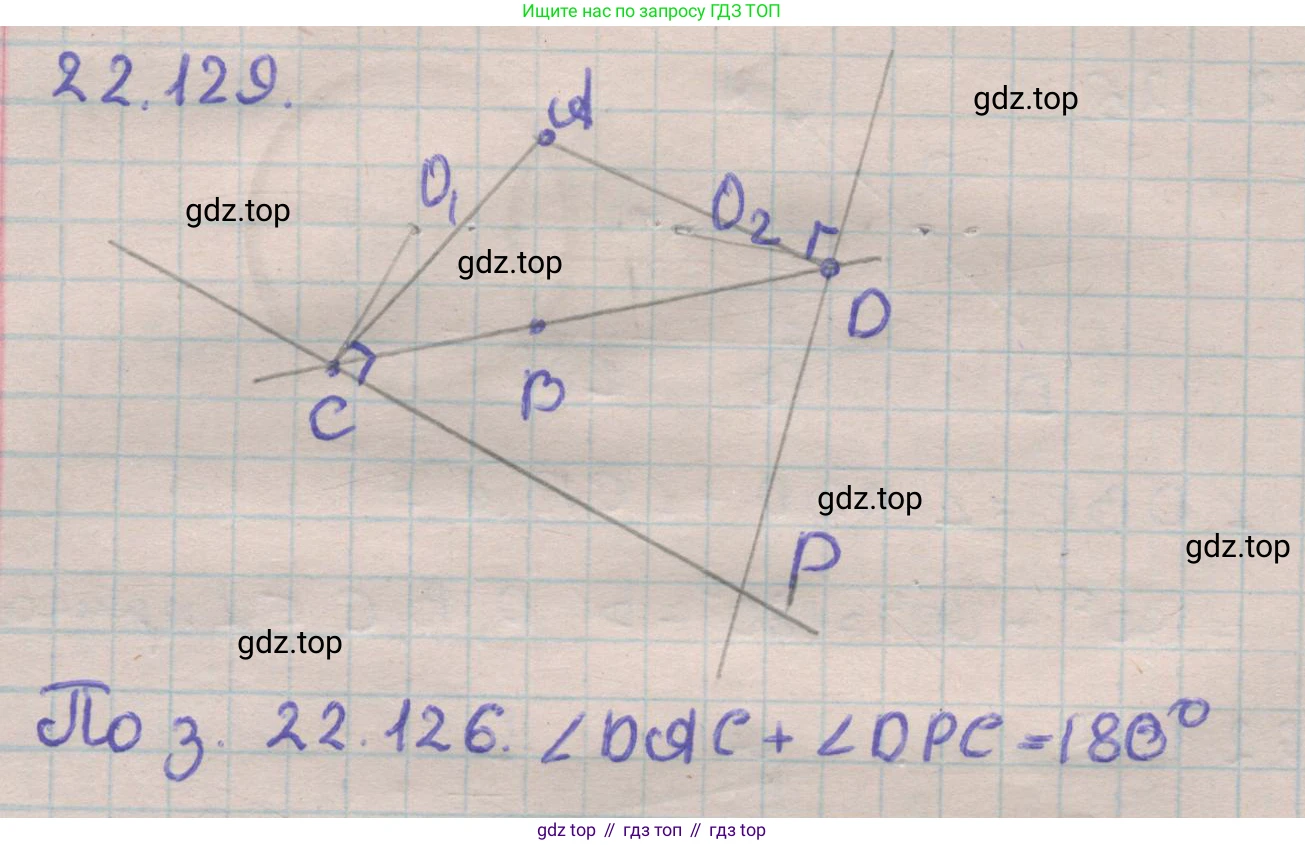 Ищите нас по запросу ГДЗ ТОП
22.129.
A
gdz.top
O₁
gdz.top
O₂
gdz.top
D
B
C
gdz.top
P
gdz.top
gdz.top
По з. 22.126. ∠DAC + ∠DPC = 180°
gdz top // гдз топ // gdz top